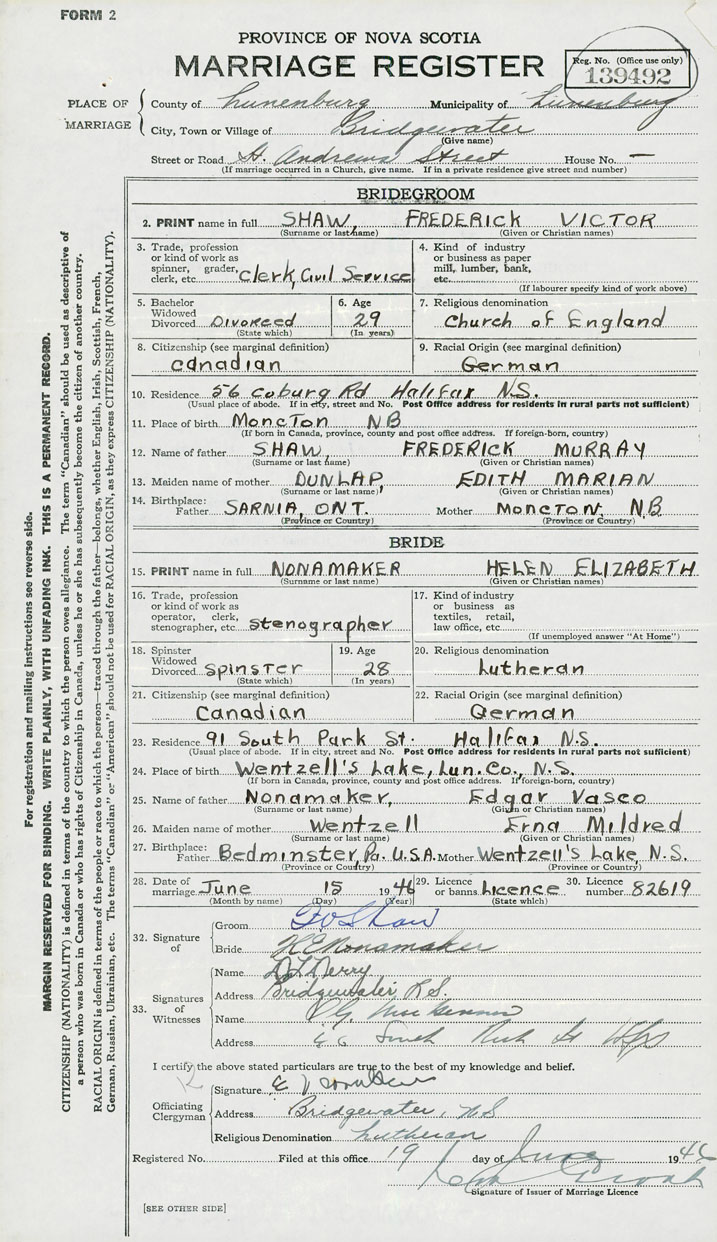 FORM 2
PROVINCE OF NOVA SCOTIA
MARRIAGE REGISTER
Reg. No. (Office use only)
139492
PLACE OF MARRIAGE
County of Lunenburg Municipality of Lunenburg
City, Town or Village of Bridgewater
(Give name)
Street or Road St. Andrews Street House No. —
(If marriage occurred in a Church, give name. If in a private residence give street and number)
BRIDEGROOM
2. PRINT name in full SHAW, FREDERICK VICTOR
(Surname or last name) (Given or Christian names)
3. Trade, profession or kind of work as spinner, grader, clerk, etc. Clerk, Civil Service
4. Kind of industry or business as paper mill, lumber, bank, etc.
(If labourer specify kind of work above)
5. Bachelor Widowed Divorced Divorced
(State which)
6. Age 29
(In years)
7. Religious denomination Church of England
8. Citizenship (see marginal definition) Canadian
9. Racial Origin (see marginal definition) German
10. Residence 56 Coburg Rd Halifax N.S.
(Usual place of abode. If in city, street and No. Post Office address for residents in rural parts not sufficient)
11. Place of birth Moncton NB
(If born in Canada, province, county and post office address. If foreign-born, country)
12. Name of father SHAW, FREDERICK MURRAY
(Surname or last name) (Given or Christian names)
13. Maiden name of mother DUNLAP, EDITH MARIAN
(Surname or last name) (Given or Christian names)
14. Birthplace: Father SARNIA, ONT. Mother MONCTON, NB
(Province or Country) (Province or Country)
BRIDE
15. PRINT name in full NONAMAKER HELEN ELIZABETH
(Surname or last name) (Given or Christian names)
16. Trade, profession or kind of work as operator, clerk, stenographer, etc. Stenographer
17. Kind of industry or business as textiles, retail, law office, etc.
(If unemployed answer "At Home")
18. Spinster Widowed Divorced Spinster
(State which)
19. Age 28
(In years)
20. Religious denomination Lutheran
21. Citizenship (see marginal definition) Canadian
22. Racial Origin (see marginal definition) German
23. Residence 91 South Park St. Halifax N.S.
(Usual place of abode. If in city, street and No. Post Office address for residents in rural parts not sufficient)
24. Place of birth Wentzell's Lake, Lun. Co., N.S.
(If born in Canada, province, county and post office address. If foreign-born, country)
25. Name of father Nonamaker, Edgar Vasco
(Surname or last name) (Given or Christian names)
26. Maiden name of mother Wentzell Erna Mildred
(Surname or last name) (Given or Christian names)
27. Birthplace: Father Bedminster, Pa. U.S.A. Mother Wentzell's Lake, N.S.
(Province or Country) (Province or Country)
28. Date of marriage June 15 1946
(Month by name) (Day) (Year)
29. Licence or banns Licence
(State which)
30. Licence number 82619
32. Signature of
Groom F V Shaw
Bride H E Nonamaker
33. Signatures of Witnesses
Name
Address Bridgewater N.S.
Name
Address South Park St Hfx
I certify the above stated particulars are true to the best of my knowledge and belief.
Officiating Clergyman
Signature
Address Bridgewater, N.S
Religious Denomination Lutheran
Registered No. Filed at this office 19 day of June 1946
Signature of Issuer of Marriage Licence
[SEE OTHER SIDE]
For registration and mailing instructions see reverse side.
MARGIN RESERVED FOR BINDING. WRITE PLAINLY, WITH UNFADING INK. THIS IS A PERMANENT RECORD.
CITIZENSHIP (NATIONALITY) is defined in terms of the country to which the person owes allegiance. The term "Canadian" should be used as descriptive of
a person who was born in Canada or who has rights of Citizenship in Canada, unless he or she has subsequently become the citizen of another country.
RACIAL ORIGIN is defined in terms of the people or race to which the person—traced through the father—belongs, whether English, Irish, Scottish, French,
German, Russian, Ukrainian, etc. The terms "Canadian" or "American" should not be used for RACIAL ORIGIN, as they express CITIZENSHIP (NATIONALITY).